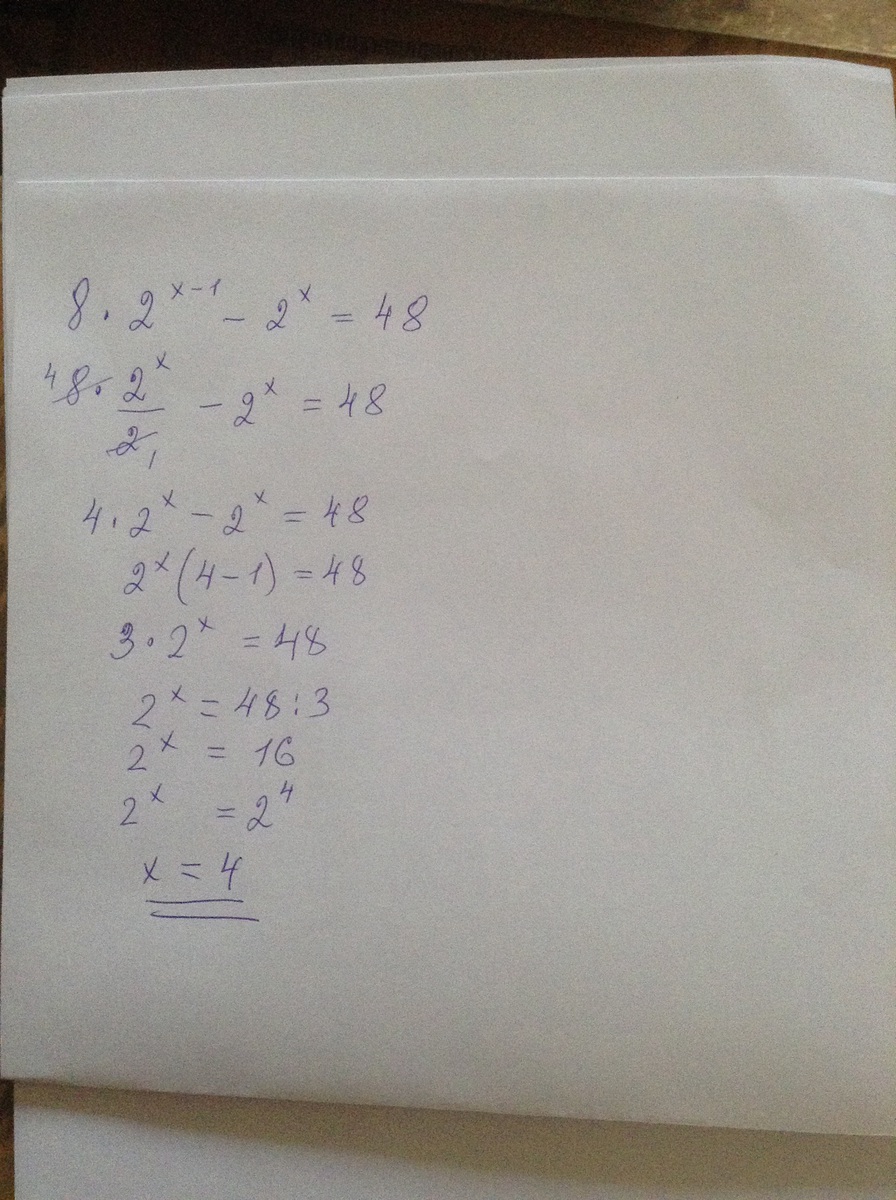 8 · 2^(x-1) - 2^x = 48
4 8 · 2^x / 2 1 - 2^x = 48
4 · 2^x - 2^x = 48
2^x (4 - 1) = 48
3 · 2^x = 48
2^x = 48 : 3
2^x = 16
2^x = 2^4
x = 4